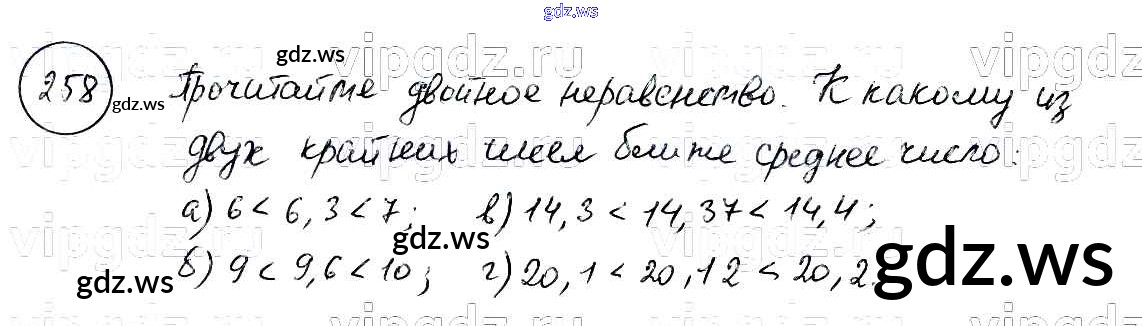 gdz.ws
vipgdz.ru vipgdz.ru vipgdz.ru
gdz.ws
258 Прочитайте двойное неравенство. К какому из
gdz.ws
двух крайних чисел ближе среднее число:
а) 6 < 6,3 < 7; в) 14,3 < 14,37 < 14,4;
gdz.ws
gdz.ws
б) 9 < 9,6 < 10; г) 20,1 < 20,12 < 20,2.
gdz.ws